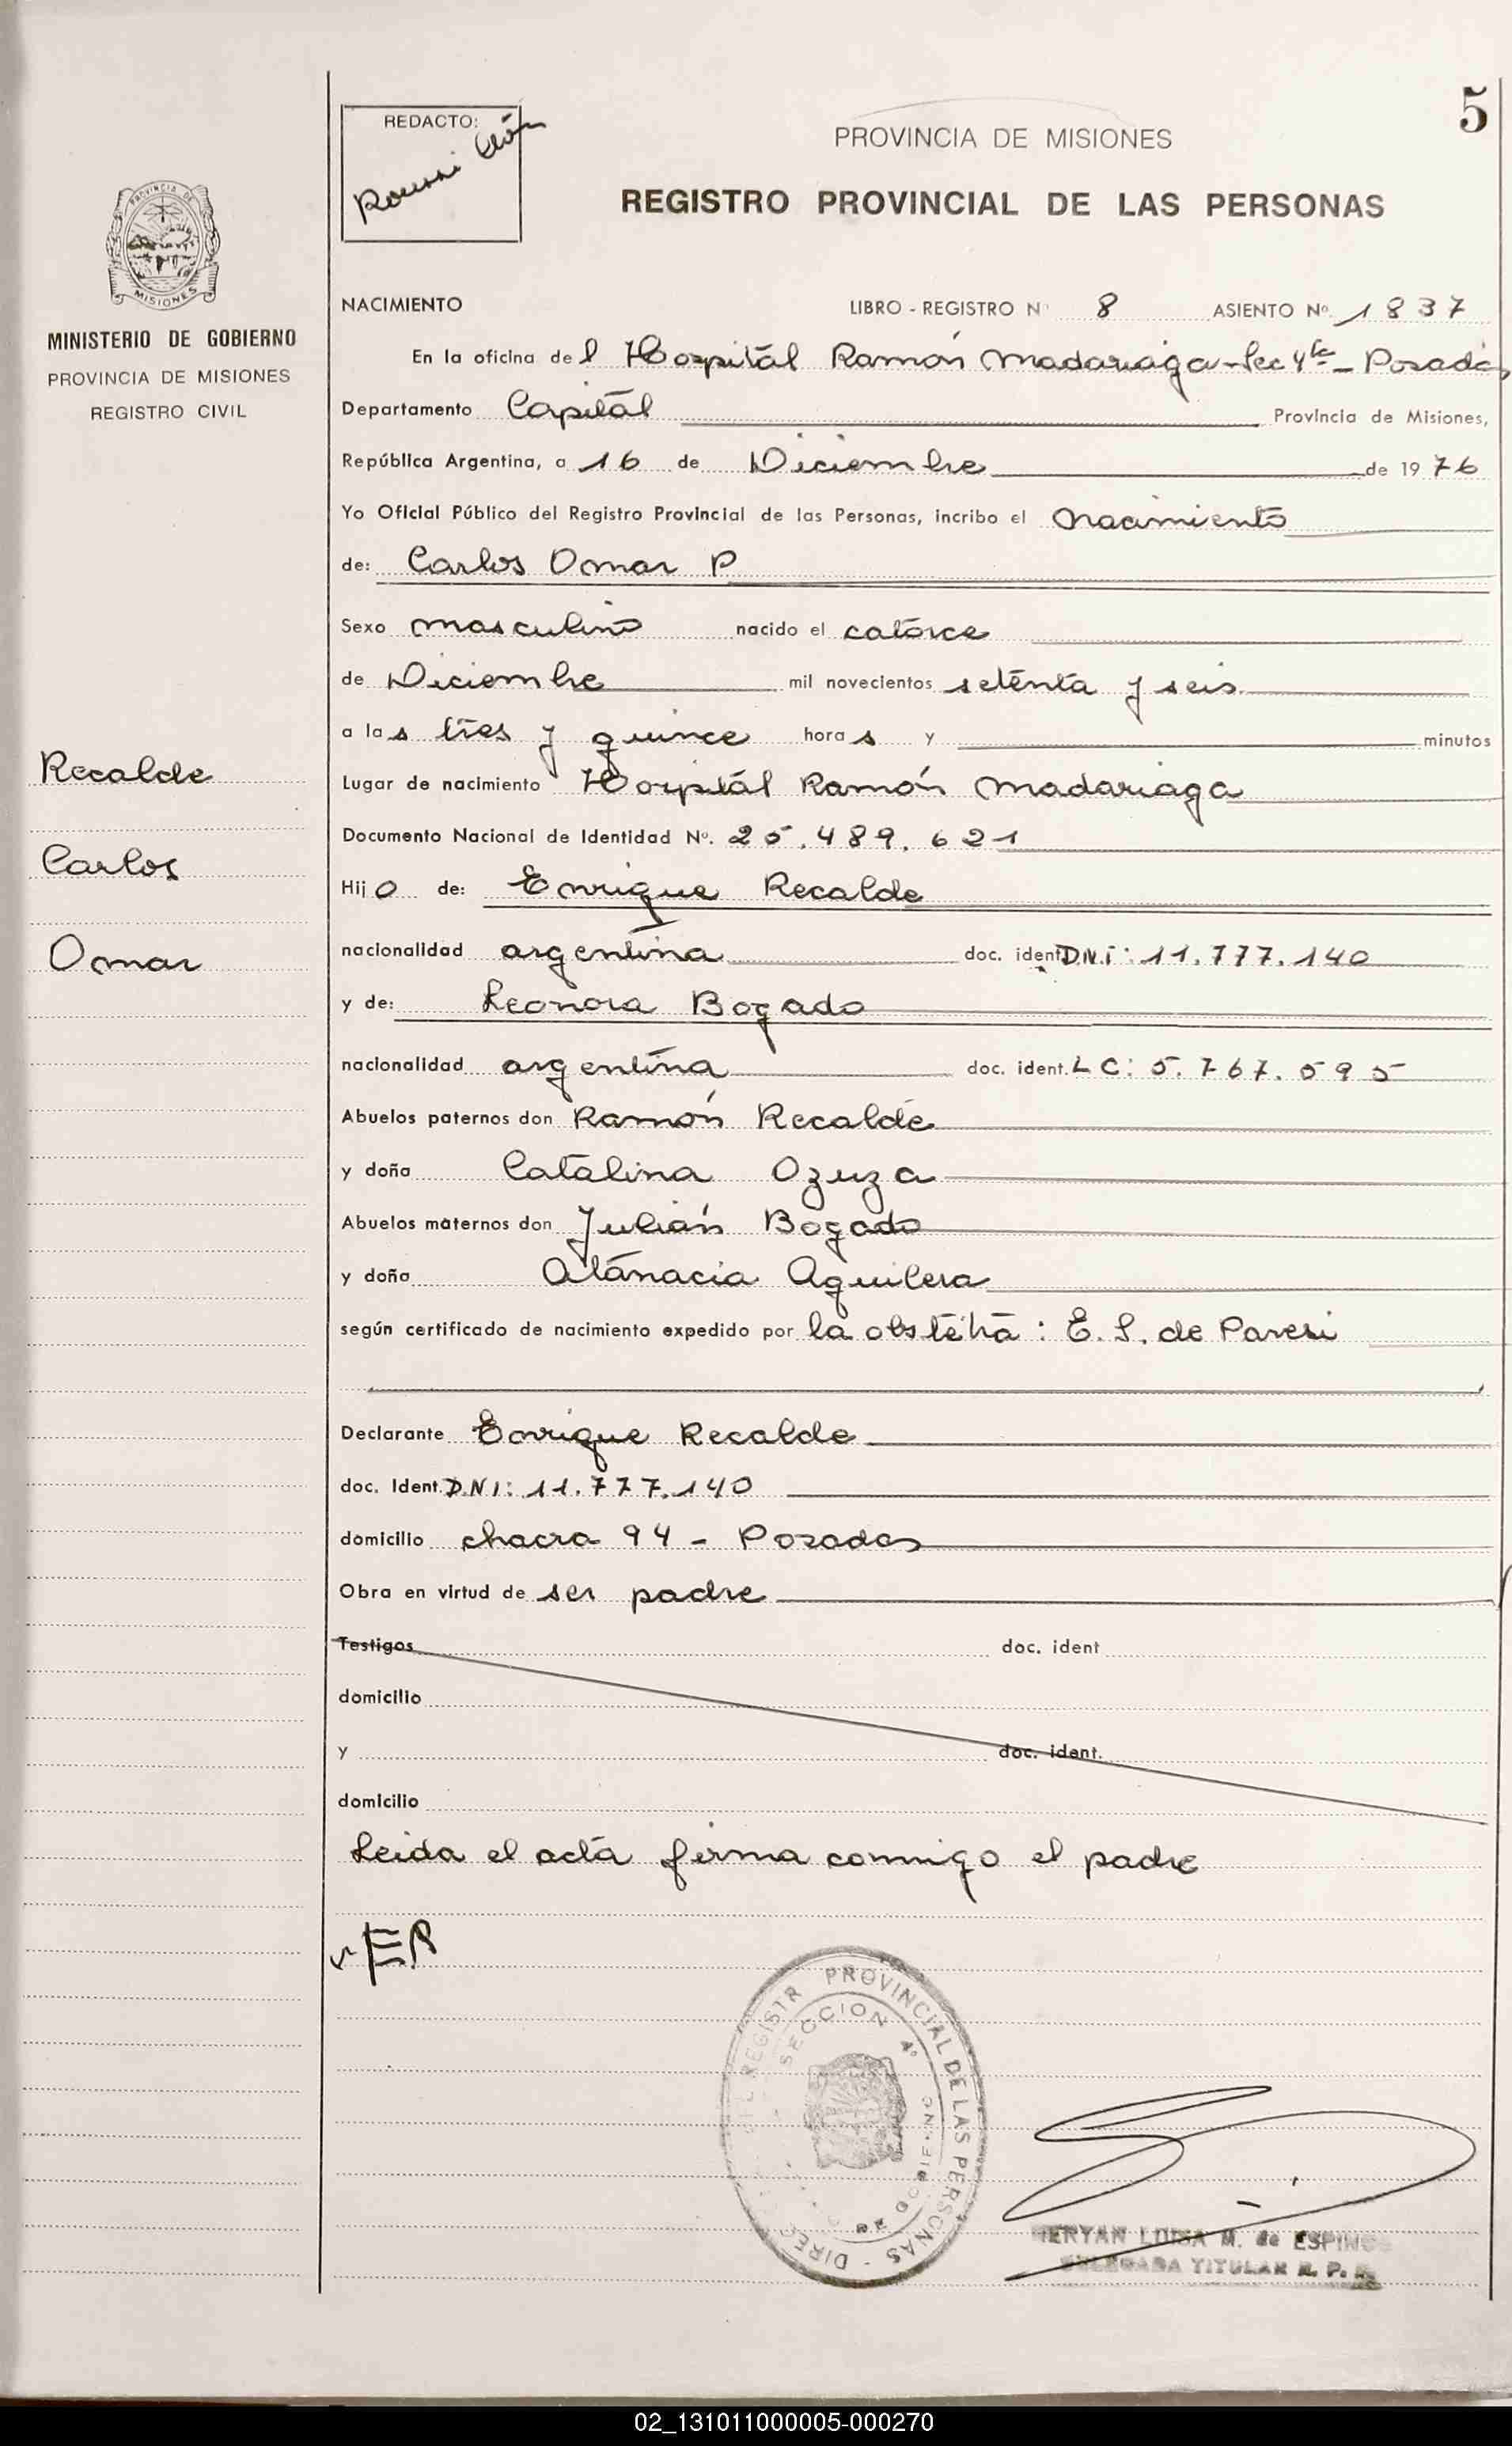 5
REDACTO:
PROVINCIA DE MISIONES
REGISTRO PROVINCIAL DE LAS PERSONAS
PROVINCIA DE
MISIONES
MINISTERIO DE GOBIERNO
PROVINCIA DE MISIONES
REGISTRO CIVIL
NACIMIENTO LIBRO - REGISTRO Nº 8 ASIENTO Nº 1837
En la oficina del Hospital Ramón Madariaga - Sec 4ta - Posadas
Departamento Capital Provincia de Misiones,
República Argentina, a 16 de Diciembre de 1976
Yo Oficial Público del Registro Provincial de las Personas, incribo el nacimiento
de: Carlos Omar P
Sexo masculino nacido el catorce
de Diciembre mil novecientos setenta y seis
a las tres y quince horas y minutos
Recalde
Lugar de nacimiento Hospital Ramón Madariaga
Documento Nacional de Identidad Nº. 25.489.621
Carlos
Hijo de: Enrique Recalde
Omar
nacionalidad argentina doc. ident D.N.i: 11.777.140
y de: Leonora Bogado
nacionalidad argentina doc. ident. L C: 5.767.595
Abuelos paternos don Ramón Recalde
y doña Catalina Ozuza
Abuelos maternos don Julián Bogado
y doña Atanacia Aguilera
según certificado de nacimiento expedido por la obstetra : E. S. de Paresi
Declarante Enrique Recalde
doc. Ident. D.N.I: 11.777.140
domicilio chacra 94 - Posadas
Obra en virtud de ser padre
Testigos doc. ident
domicilio
y doc. ident.
domicilio
Leida el acta firma conmigo el padre
ER
REGISTR PROVINCIAL DE LAS PERSONAS - DIREC
SECCION 4º
LUISA M. de ESPINO
TITULAR R. P.
02_131011000005-000270